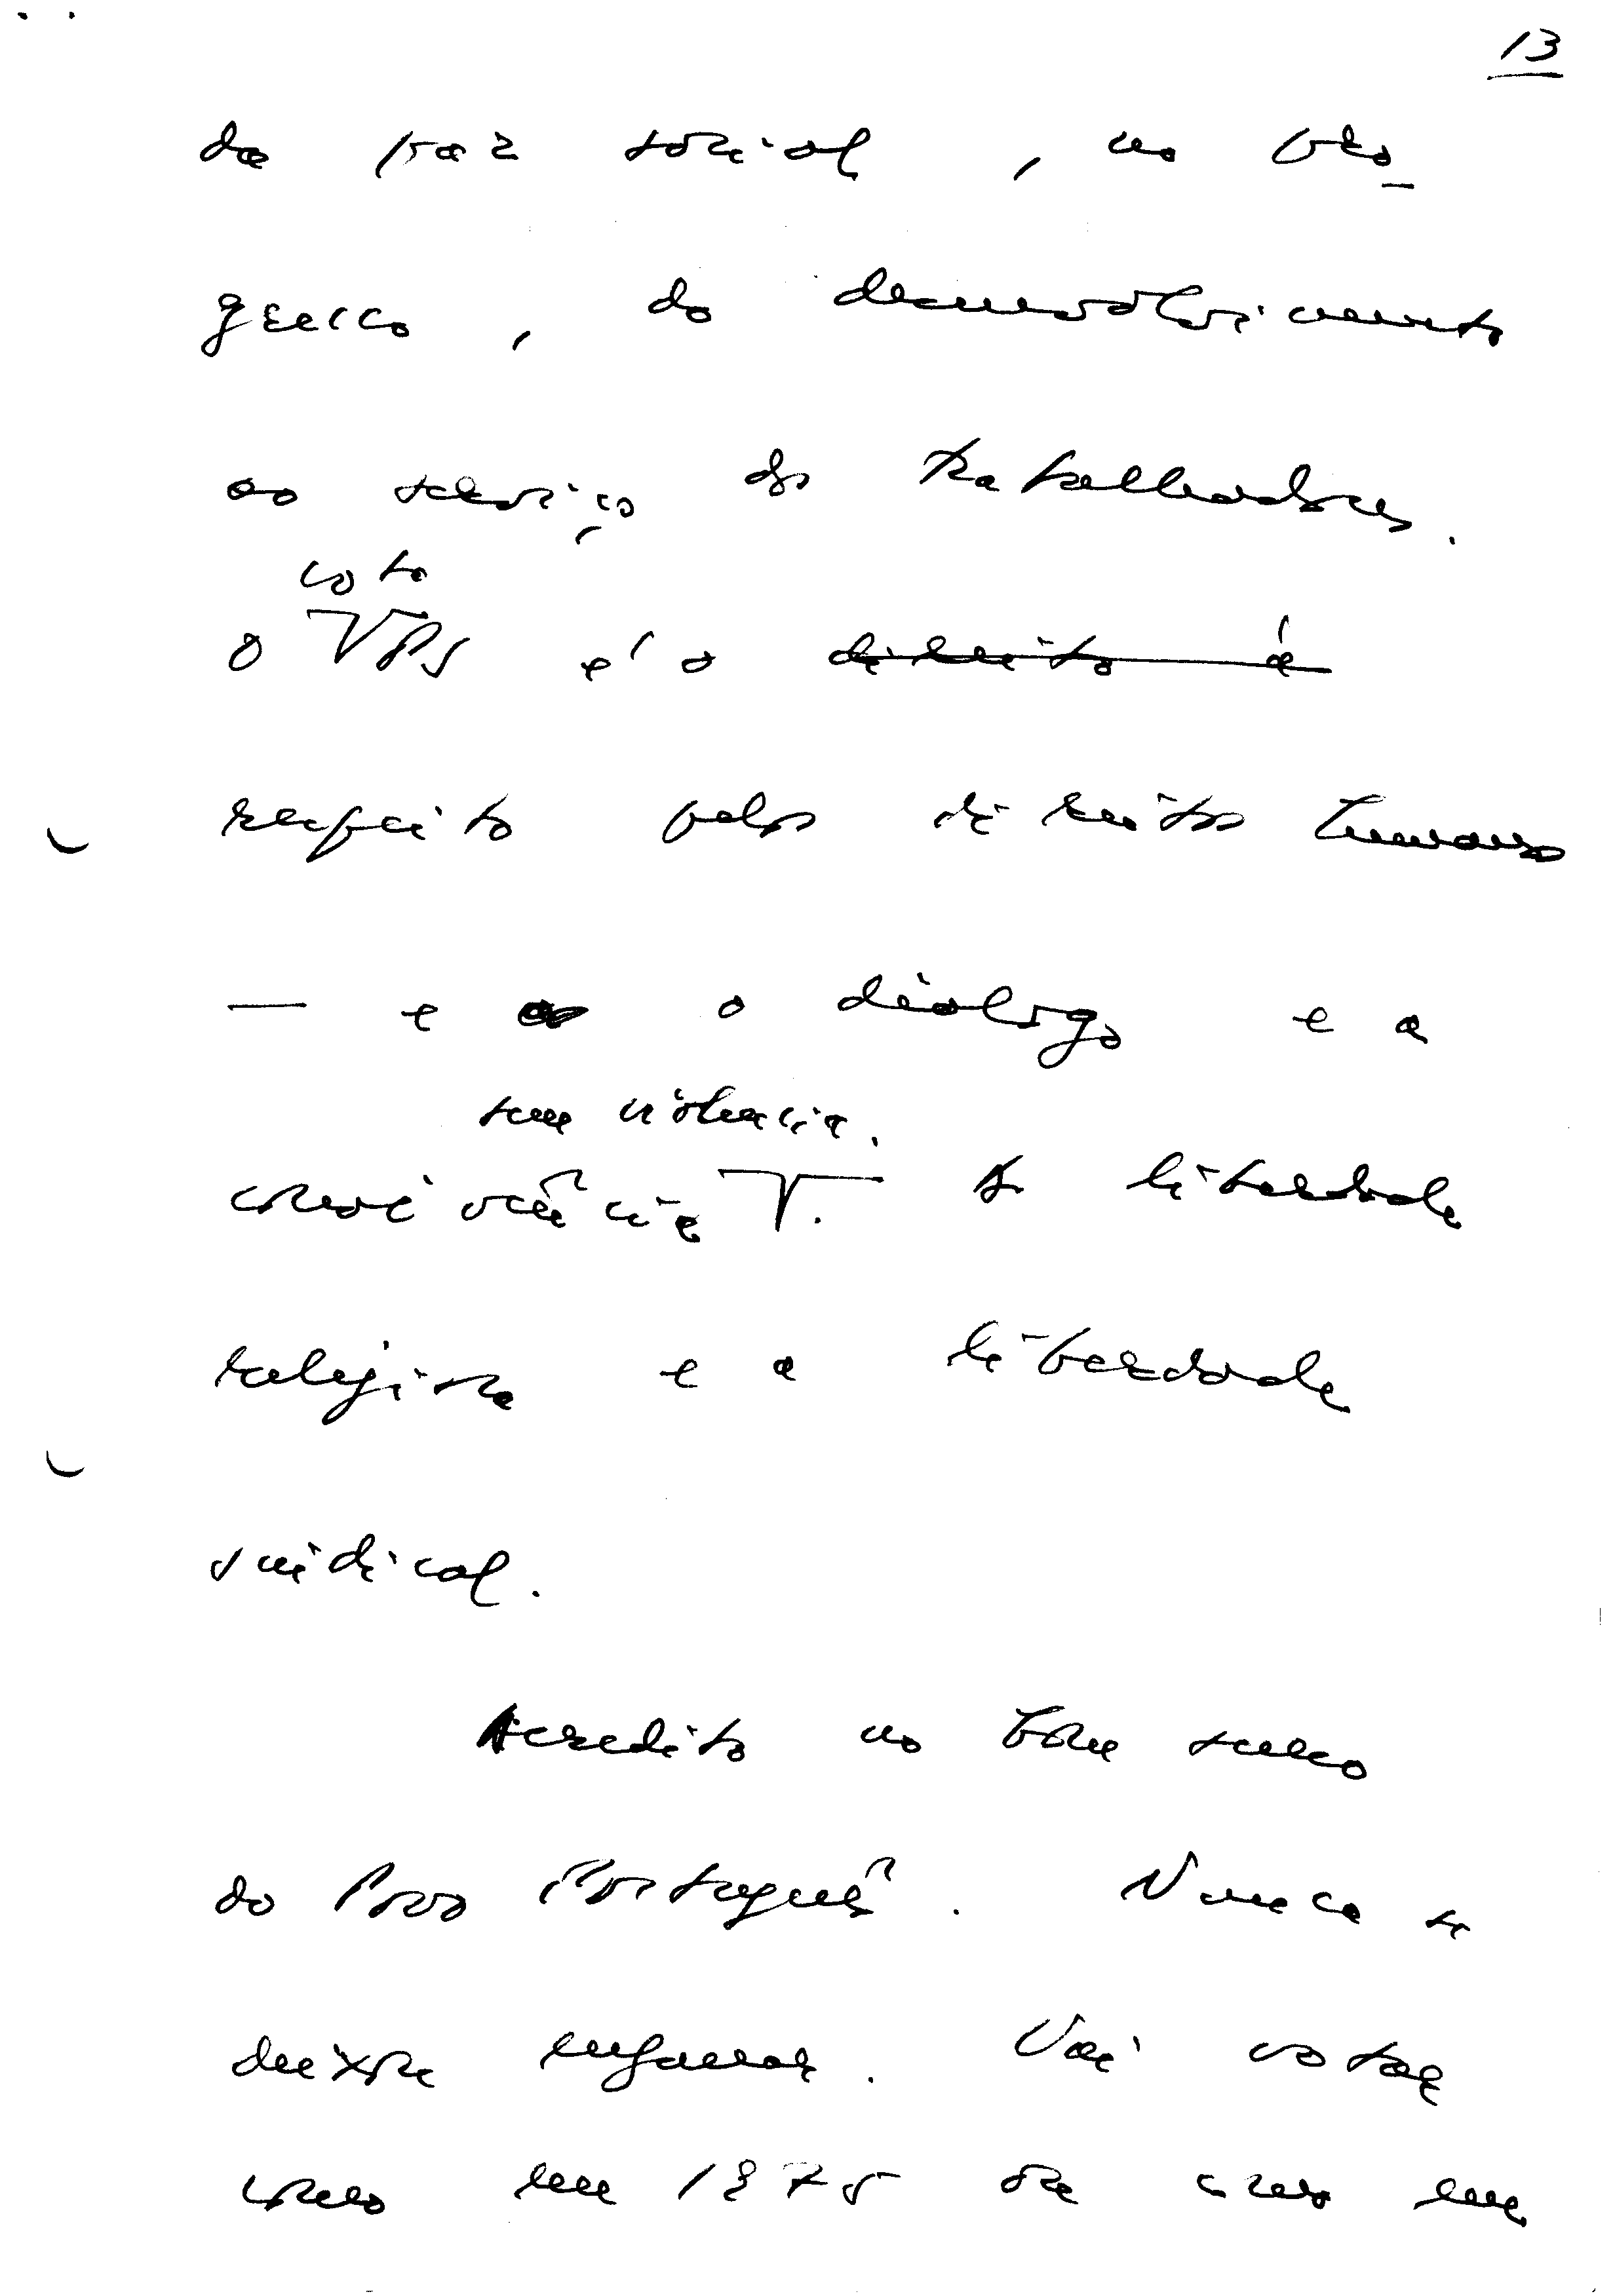 13
da paz social, no pro-
gresso, do desenvolvimento
ao serviço dos trabalhadores.
voto
o PS é o direito à
respeito pelos direitos humanos
— e o diálogo e a
sem violência.
convivência. A liberdade
religiosa e a liberdade
sindical.
Acredito no bom senso
do Povo Português. Nunca se
deixou enganar. Vai votar
como em 1975 ou como em